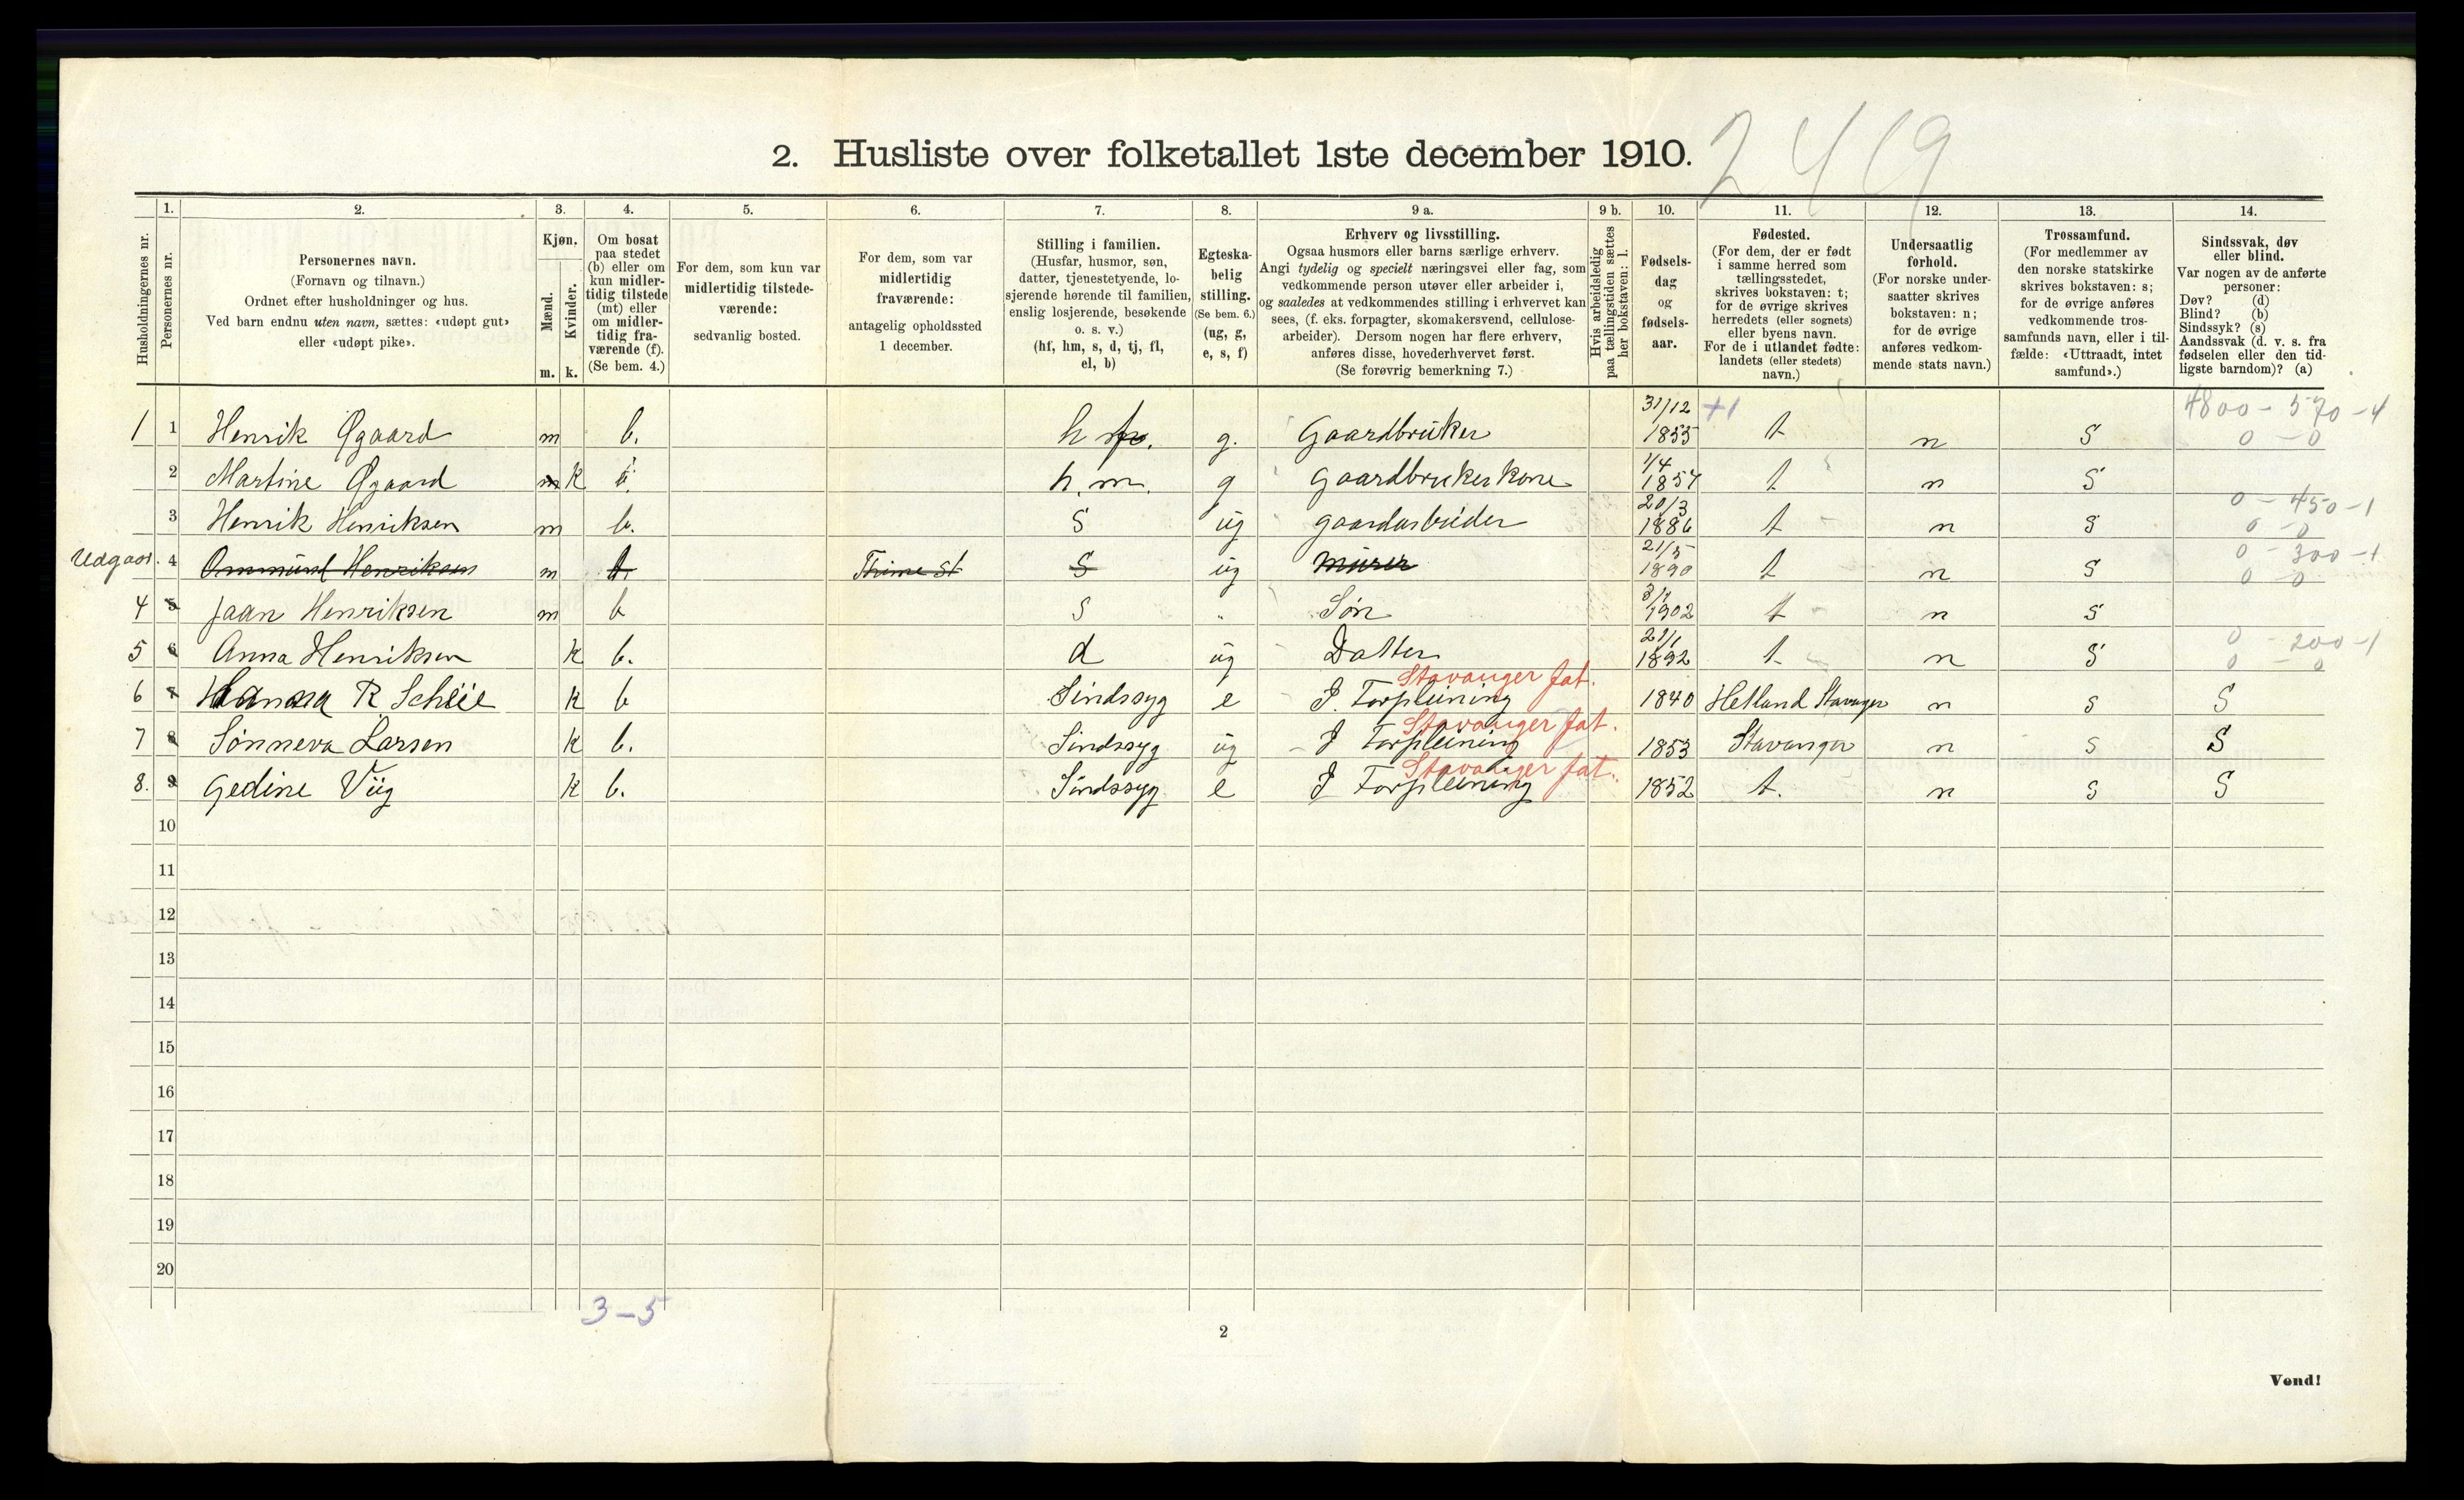 2. Husliste over folketallet 1ste december 1910.
249
1. 2. 3. 4. 5. 6. 7. 8. 9 a. 9 b. 10. 11. 12. 13. 14.
Husholdningernes nr.
Personernes nr.
Personernes navn.
(Fornavn og tilnavn.)
Ordnet efter husholdninger og hus.
Ved barn endnu uten navn, sættes: «udøpt gut»
eller «udøpt pike».
Kjøn.
Mænd.
Kvinder.
m. k.
Om bosat
paa stedet
(b) eller om
kun midler-
tidig tilstede
(mt) eller
om midler-
tidig fra-
værende (f).
(Se bem. 4.)
For dem, som kun var
midlertidig tilstede-
værende:
sedvanlig bosted.
For dem, som var
midlertidig
fraværende:
antagelig opholdssted
1 december.
Stilling i familien.
(Husfar, husmor, søn,
datter, tjenestetyende, lo-
sjerende hørende til familien,
enslig losjerende, besøkende
o. s. v.)
(hf, hm, s, d, tj, fl,
el, b)
Egteska-
belig
stilling.
(Se bem. 6.)
(ug, g,
e, s, f)
Erhverv og livsstilling.
Ogsaa husmors eller barns særlige erhverv.
Angi tydelig og specielt næringsvei eller fag, som
vedkommende person utøver eller arbeider i,
og saaledes at vedkommendes stilling i erhvervet kan
sees, (f. eks. forpagter, skomakersvend, cellulose-
arbeider). Dersom nogen har flere erhverv,
anføres disse, hovederhvervet først.
(Se forøvrig bemerkning 7.)
Hvis arbeidsledig
paa tællingstiden sættes
her bokstaven: l.
Fødsels-
dag
og
fødsels-
aar.
Fødested.
(For dem, der er født
i samme herred som
tællingsstedet,
skrives bokstaven: t;
for de øvrige skrives
herredets (eller sognets)
eller byens navn.
For de i utlandet fødte:
landets (eller stedets)
navn.)
Undersaatlig
forhold.
(For norske under-
saatter skrives
bokstaven: n;
for de øvrige
anføres vedkom-
mende stats navn.)
Trossamfund.
(For medlemmer av
den norske statskirke
skrives bokstaven: s;
for de øvrige anføres
vedkommende tros-
samfunds navn, eller i til-
fælde: «Uttraadt, intet
samfund».)
Sindssvak, døv
eller blind.
Var nogen av de anførte
personer:
Døv? (d)
Blind? (b)
Sindssyk? (s)
Aandssvak (d. v. s. fra
fødselen eller den tid-
ligste barndom)? (a)
4800 - 570 - 4
1 1 Henrik Øgaard m b. h g. Gaardbruker 31/12 1855 +1 t n S 0 - 0
2 Martine Øgaard k b. h. m. g gaardbrukerkone 1/4 1857 t n S
3 Henrik Henriksen m b. S ug gaardarbeider 20/3 1886 t n S 0 - 450 - 1
0 - 0
Udgaar. 4 Ommund Henriksen m Thime St S ug Murer 21/5 1890 t n S 0 - 300 - 1
0 - 0
4 5 Jaan Henriksen m b S " Søn 1902 t n S
5 6 Anna Henriksen k b. d ug Datter 21/1 1892 t n S 0 - 200 - 1
0 - 0
Stavanger fat.
6 7 Hanna R Scheie k b Sindssyg e I Forpleining 1840 Hetland Stavanger n s S
Stavanger fat.
7 8 Sønneva Larsen k b. Sindssyg ug I Forpleining 1853 Stavanger n s S
Stavanger fat.
8. 9 Gedine Viig k b. Sindssyg e I Forpleining 1852 t. n s S
10
11
12
13
14
15
16
17
18
19
20
3 - 5
2
Vend!